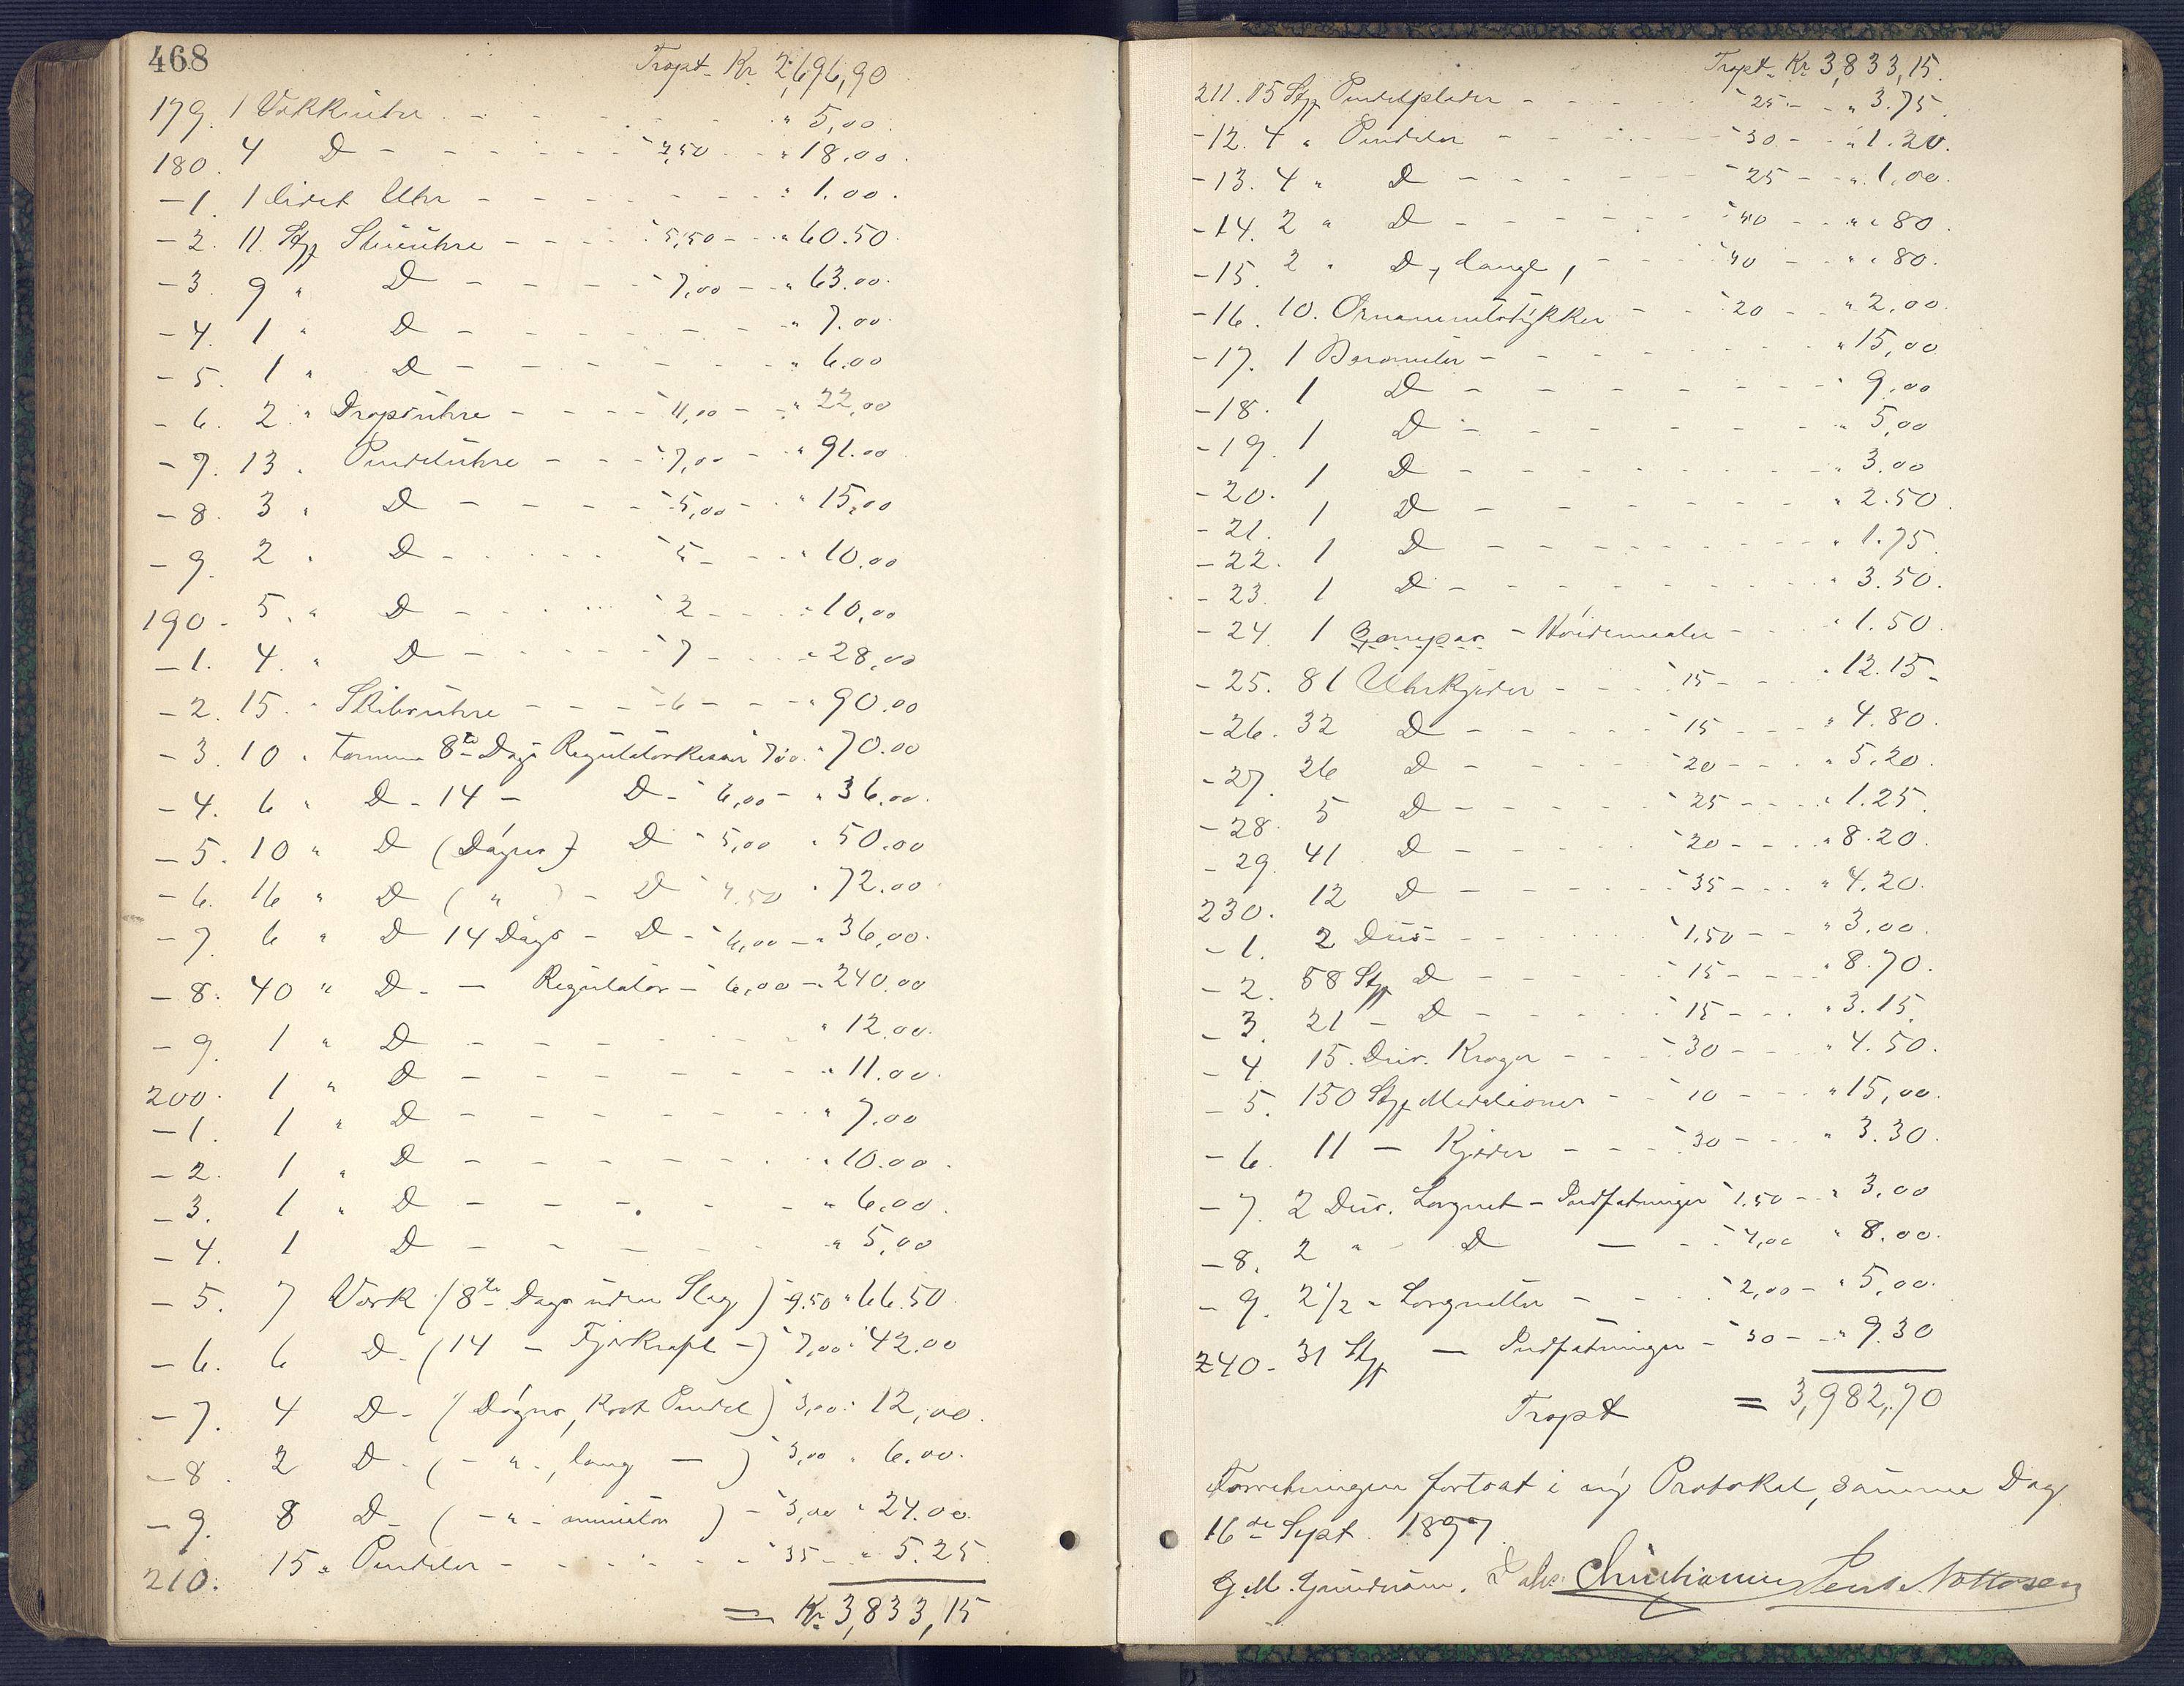 468
Tropt. Kr 2,696,90
179. 1 Vækkeuhr - - - " 5,00.
180. 4 D - - - - " 4,50 - " 18.00.
- 1. 1 lidet Uhr - - - - " 1.00.
- 2. 11 Stkr Stueuhre - - - " 5,50 - " 60.50.
- 3. 9 " D - - - " 7,00 - " 63.00.
- 4. 1 " D - - - - " 7.00.
- 5. 1 " D - - - - " 6.00
- 6. 2 " Dragsuhre - - - " 11,00 - " 22,00
- 7. 13 " Penduluhre - - - " 7,00 - " 91.00
- 8. 3 " D - - - " 5,00 - " 15,00
- 9. 2 " D - - - " 5 - " 10.00
190. 5 " D - - - " 2 - " 10,00
- 1. 4. " D - - - " 7 - " 28,00
- 2. 15. " Skibsuhre - - - " 6 - " 90.00
- 3. 10 " tomme 8te Dags Regulatorkasser 7,00. " 70.00
- 4. 6 " D - 14 - D - " 6,00 - " 36,00.
- 5. 10 " D (Døgns) D " 5,00 " 50.00
- 6. 16 " D ( " ) - D " 4.50 " 72.00
- 7. 6 " D 14 Dags - D - " 6,00 - " 36,00.
- 8. 40 " D. - Regulator - " 6,00 - " 240.00
- 9. 1 " D - - - - " 12.00.
200. 1 " D - - - - " 11.00.
- 1. 1 " D - - - - " 7.00
- 2. 1 " D - - - - " 10.00.
- 3. 1 " D - - - - " 6.00.
- 4. 1 D - - - - " 5,00
- 5. 7 Værk (8te Dags uden Slag) " 9.50 " 66.50
- 6. 6 D - (14 - Fjærkraft -) " 7,00 " 42.00
- 7. 4 D - (Døgns, kort Pendel) " 3,00 " 12,00.
- 8. 2 D - ( - " -, lang - ) " 3,00 " 6.00.
- 9. 8 D - ( - " - ) - " 3,00 " 24.00.
210. 15 " Pendeler - - - " 35 - " 5.25
= Kr 3,833,15
Tropt. Kr 3,833,15.
211. 15 Stkr Pendelplader - - - " 25 - " 3.75
- 12. 4 " Pendeler - - - " 30 - " 1.20.
- 13. 4 " D - - - " 25 - " 1,00.
- 14. 2 " D - - - " 40 - " " 80.
- 15. 2 " D, lange, - - " 40 - " " 80.
- 16. 10. Ornamentstykker - - " 20 - " 2,00.
- 17. 1 Barometer - - - - " 15,00
- 18. 1 D - - - - " 9.00
- 19. 1 D - - - - " 5,00
- 20. 1 D - - - - " 3.00
- 21. 1 D - - - - " 2.50.
- 22. 1 D - - - - " 1.75.
- 23. 1 D - - - - " 3.50.
- 24. 1 - Høidemaaler - - " 1.50.
- 25. 81 Uhrkjæder - - - " 15 - " 12.15-
- 26. 32 D - - - " 15 " 4.80.
- 27. 26 D - - - " 20 - " 5.20.
- 28. 5 D - - - " 25 - " 1.25.
- 29. 41 D - - - " 20 - " 8.20.
230. 12 D - - - " 35 - " 4.20.
- 1. 2 Dus - - - " 1,50 - " 3.00.
- 2. 58 Stkr D - - - " 15 - " 8.70.
- 3. 21 - D - - - " 15 - " 3.15.
- 4 15. Dus. Kroger - - - " 30 - " 4.50.
- 5. 150 Stkr Medalioner - - " 10 - " 15,00.
- 6. 11 - Kjæder - - - " 30 - " 3.30.
- 7. 2 Dus. Lorgnet - Indfatninger " 1.50 - " 3,00
- 8. 2 " D - - " 4,00 " 8.00.
- 9. 2 1/2 - Lorgnetter - - " 2,00 - " 5,00.
240 - 31 Stkr - Indfatninger - " 30 - " 9.30
Tropt = 3,982,70
Forretningen fortsat i ny Protokol, samme Dag
16de Sept. 1897.
G. M. Gundersen. Christiansen